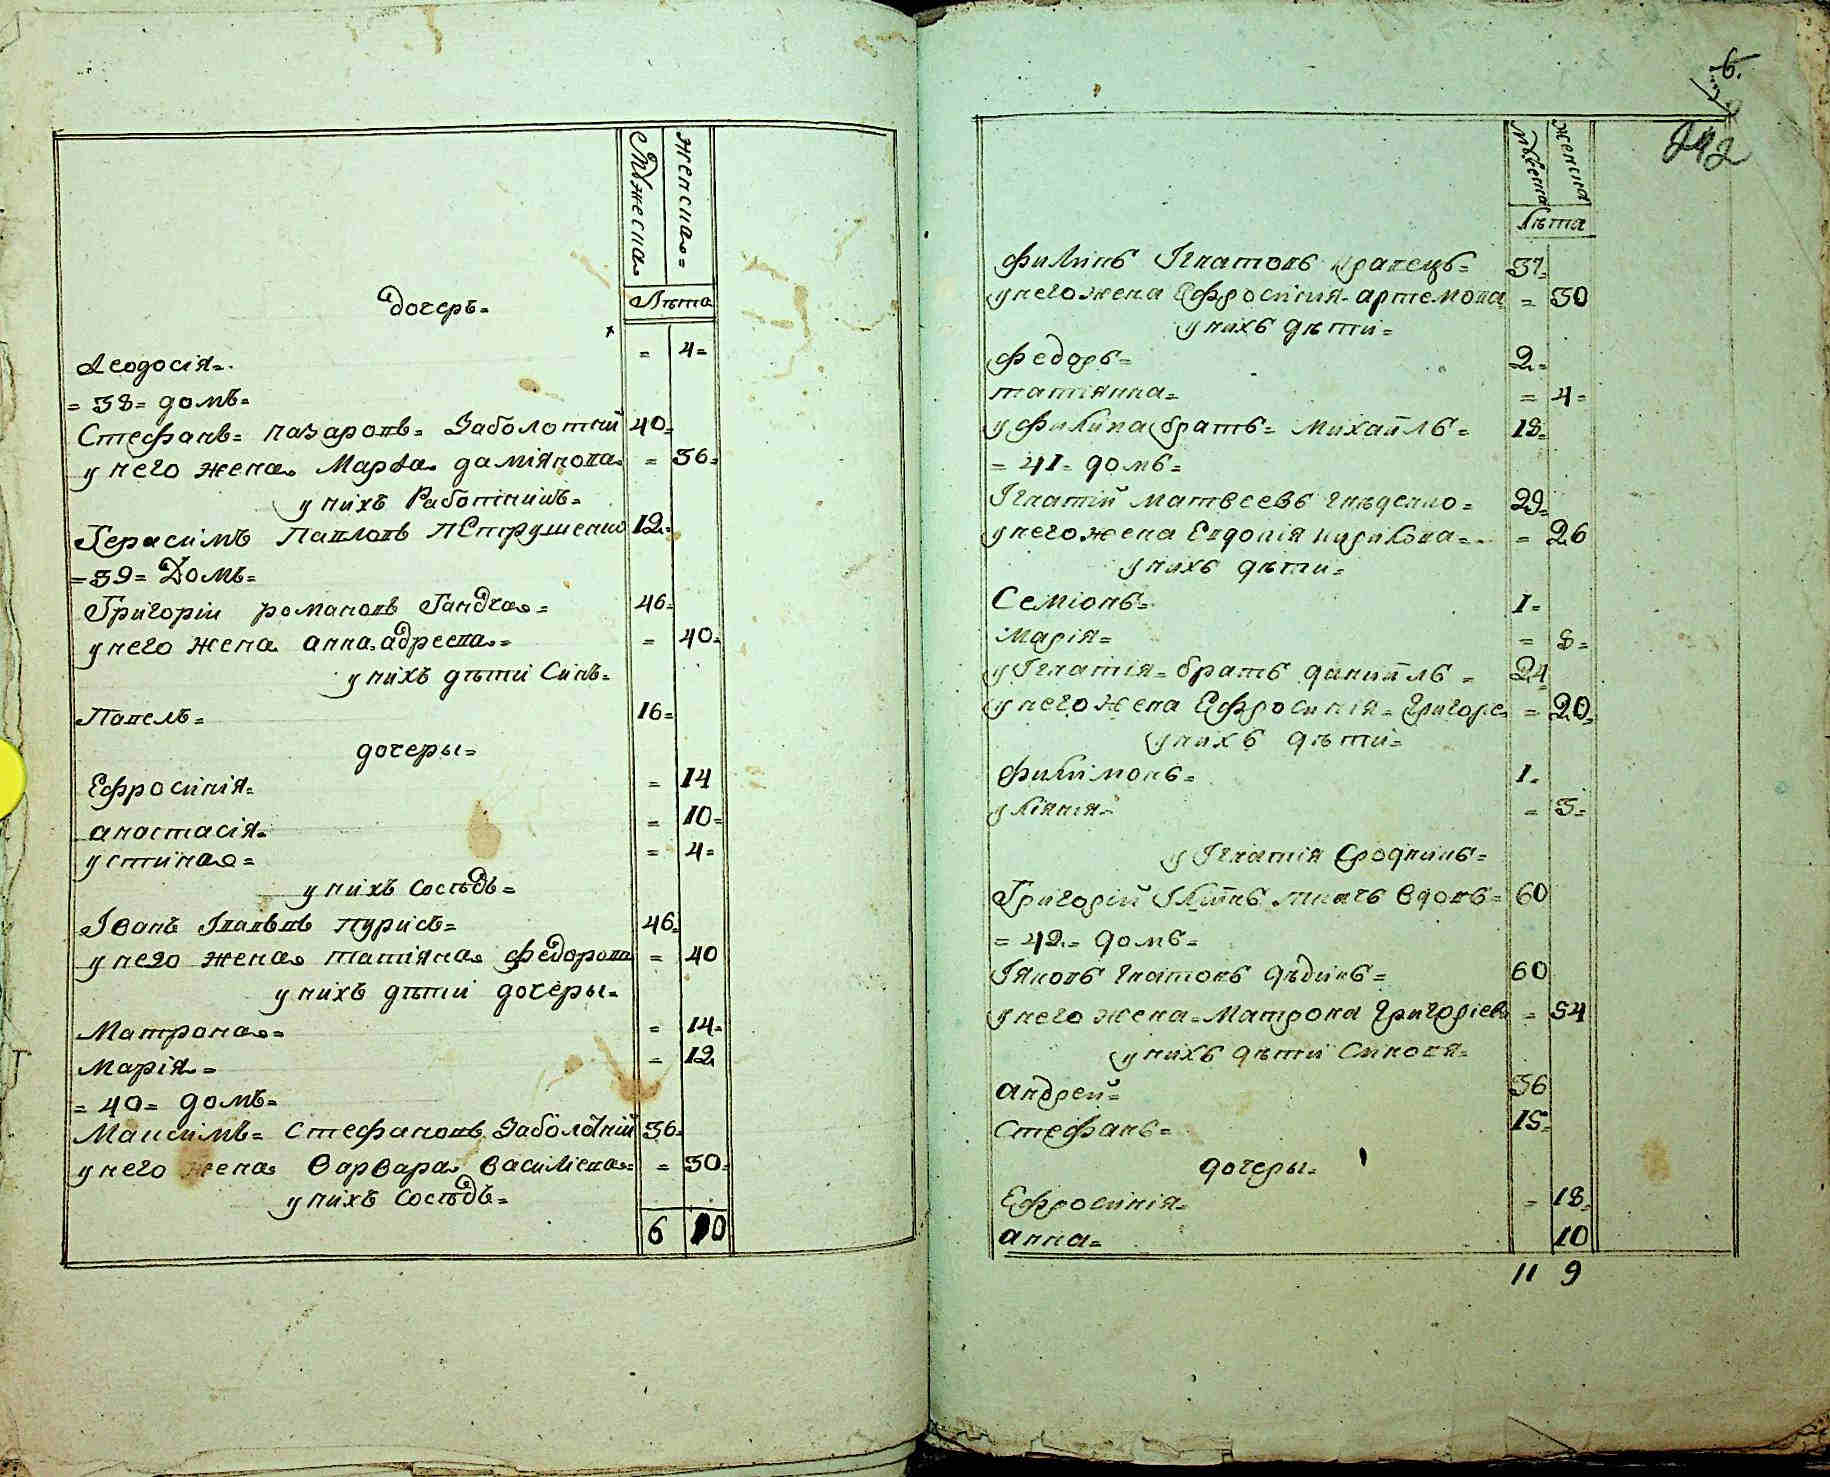 Мужеска
женска
Лѣта
дочеръ
Ѳеодосія 4
38 домъ
Стефанъ назаровъ Заболотній 40
у него жена Марѳа даміянова 36
у нихъ Работникъ
Герасимъ Павловъ Петрушенко 12
39 Домъ
Григорій романовъ Гандга 46
у него жена анна адреева 40
у нихъ дѣти Синъ
Павелъ 16
дочеры
Ефросинія 14
анастасія 10
устина 4
у нихъ сосѣдъ
Іванъ 46
у него жена татіяна федорова 40
у нихъ дѣти дочеры
Матрона 14
Марія 12
40 домъ
Максимъ Стефановъ Заболотній 36
у него жена Варвара василіева 30
у нихъ сосѣдъ
6 10
6.
242
мужеска
женска
лѣта
филипъ Ігнатовъ кравецъ 37
у него жена Ефросинія артемова 30
у нихъ дѣти
федоръ 2
татіянна 4
у филипа братъ михайлъ 18
41 домъ
Ігнатій матвеевъ 29
у него жена Евдокія кирилова 26
у нихъ дѣти
Семіонъ 1
марія 8
у Ігнатія братъ даниїлъ 24
у него жена Ефросинія григоре 20
у нихъ дѣти
филимонъ 1
уліянія 3
у Ігнатія сродникъ
Григорій ткачъ вдовъ 60
42 домъ
Іяковъ гнатовъ 60
у него жена Матрона григоріева 54
у нихъ дѣти Синовя
андрей 36
стефанъ 15
дочеры
Ефросинія 18
анна 10
11 9